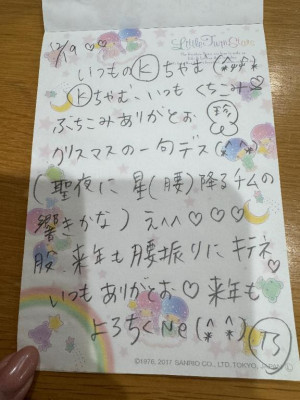 12/19 ♡♡
Little Twin Stars
いつものⓀちゃむ(*^^*)
Ⓚちゃむ、いつもくちこみ♡
ぶちこみありがとぉ 珍
クリスマスの一句デス(*^^*)
(聖夜に 星(腰)降るチムの
響きかな)え^^♡♡♡
股、来年も腰振りにキテネ♡
いつもありがとぉ♡来年も
よろちくNe(*^^*) TS
©1976, 2017 SANRIO CO., LTD. TOKYO, JAPAN